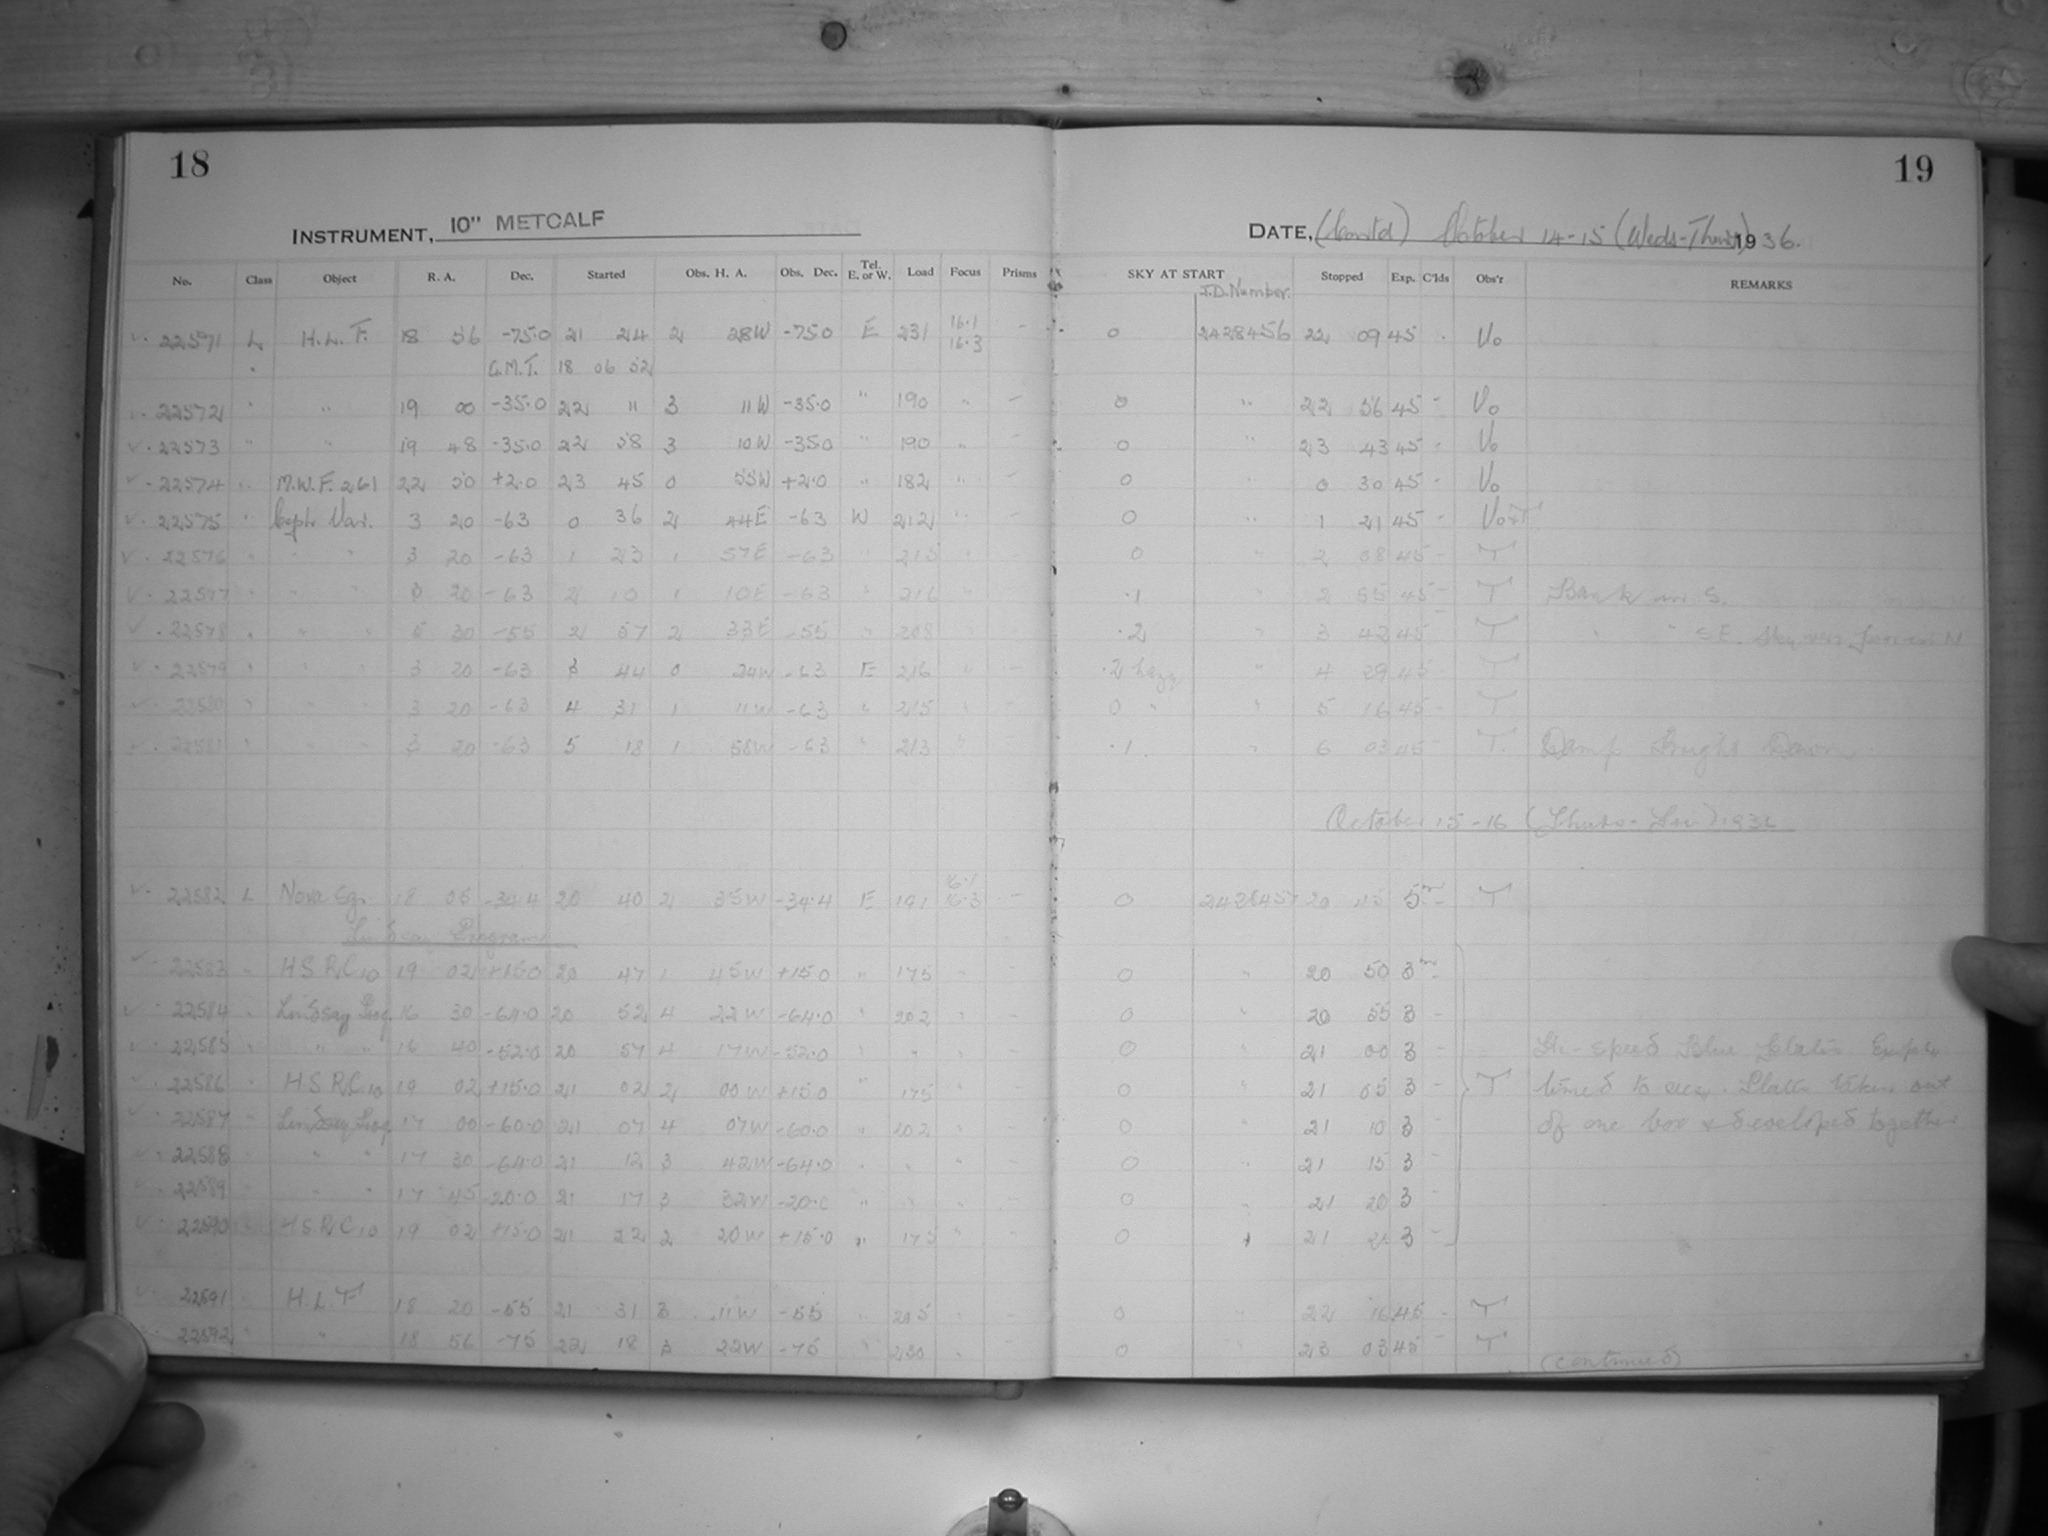 18
19
INSTRUMENT, 10" METCALF
DATE, (Contd) October 14-15 (Weds-Thurs) 1936.
No. Class Object R. A. Dec. Started Obs. H. A. Obs. Dec. Tel. E. or W. Load Focus Prisms SKY AT START J.D. Number. Stopped Exp. C'lds Obs'r REMARKS
22571 L H.L.F. 18 56 -75.0 21 24 2 28W -75.0 E 231 16.1 16.3 - 0 2428456 22 09 45 Vo
G.M.T. 18 06 52
22572 " " 19 00 -35.0 22 11 3 11W -35.0 " 190 " - 0 " 22 56 45 - Vo
22573 " " 19 48 -35.0 22 58 3 10W -35.0 " 190 " - 0 " 23 43 45 - Vo
22574 " M.W.F. 261 22 50 +2.0 23 45 0 55W +2.0 " 182 " - 0 " 0 30 45 - Vo
22575 " Ceph. Var. 3 20 -63 0 36 2 44E -63 W 212 " - 0 " 1 21 45 - Vo+T
22576 " " " 3 20 -63 1 23 1 57E -63 " 215 " - 0 " 2 08 45 - T
22577 " " " 3 20 -63 2 10 1 10E -63 " 216 " - .1 " 2 55 45 - T Bank in S.
22578 " " " 5 30 -55 2 57 2 33E -55 " 208 " - .2 " 3 42 45 - T " " SE.
22579 " " " 3 20 -63 3 44 0 24W -63 E 216 " - .2 hazy " 4 29 45 - T
22580 " " " 3 20 -63 4 31 1 11W -63 " 215 " - 0 " " 5 16 45 - T
22581 " " " 3 20 -63 5 18 1 58W -63 " 213 " - .1 " 6 03 45 - T. Damp Bright Dawn
October 15-16 (Thurs-Fri) 1936
22582 L Nova Sgr. 18 05 -34.4 20 40 2 35W -34.4 E 191 16.1 16.3 - 0 2428457 20 45 5m - T
Lindsay Program
22583 " H S R C 10 19 02 +15.0 20 47 1 45W +15.0 " 175 " - 0 " 20 50 3m -
22584 " Lindsay Prog. 16 30 -64.0 20 52 4 22W -64.0 " 202 " - 0 " 20 55 3 -
22585 " " " 16 40 -52.0 20 57 4 17W -52.0 " " " - 0 " 21 00 3 - Hi-speed Blue Plates Exps.
22586 " H S R C 10 19 02 +15.0 21 02 2 00W +15.0 " 175 " - 0 " 21 05 3 - T timed to sec. Plates taken out
22587 " Lindsay Prog. 17 00 -60.0 21 07 4 07W -60.0 " 202 " - 0 " 21 10 3 of one box & developed together
22588 " " " 17 30 -64.0 21 12 3 42W -64.0 " " " - 0 " 21 15 3 -
22589 " " " 17 45 -20.0 21 17 3 32W -20.0 " " " - 0 " 21 20 3 -
22590 " H S R C 10 19 02 +15.0 21 22 2 20W +15.0 " 175 " - 0 " 21 25 3 -
22591 " H.L.F 18 20 -55 21 31 3 11W -55 " 205 " - 0 " 22 16 45 - T
22592 " " 18 56 -75 22 18 3 22W -75 " 230 " - 0 " 23 03 45 - T
(continued)